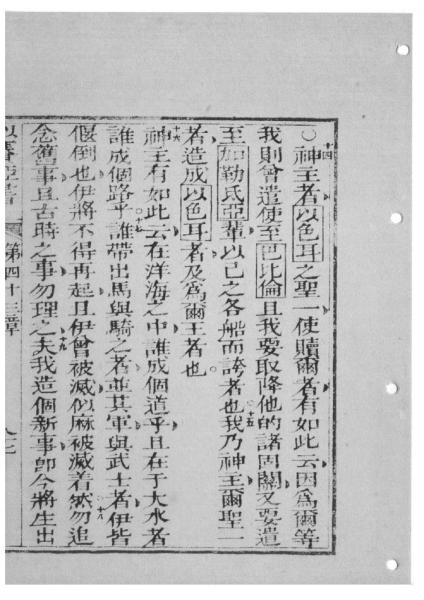 十四
○神主者以色耳之聖一使贖爾者有如此云因爲爾等
我則曾遣使至巴比倫且我要取降他的諸固關又要遣
至加勒氐亞輩以己之各船而誇者也十五我乃神主爾聖一
者造成以色耳者及爲爾王者也。
十六
神主有如此云在洋海之中誰成個道乎且在于大水者
誰成個路乎十七誰帶出馬與騎之者並其軍與武士者伊皆
偃倒也伊將不得再起且伊曾被滅似麻被滅着然十八勿追
念舊事且古時之事勿理之十九夫我造個新事卽今將生出
以賽亞書 第四十三章